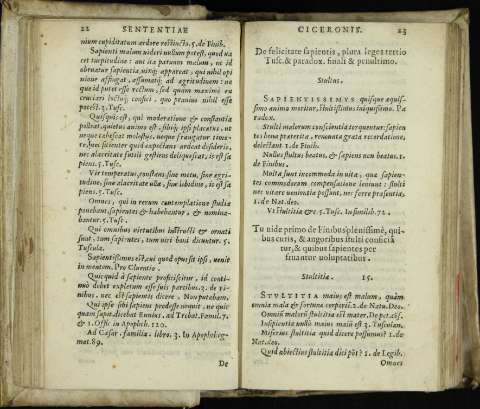 22 SENTENTIAE
nium cupiditatum ardore restincto. 5. de Finib.
Sapienti malum uideri nullum potest, quod ua
cet turpitudine: aut ita paruum malum, ut id
obruatur sapientia, uixq; appareat, qui nihil opi
nione affingat, assumatq; ad aegritudinem: ne
que id putet esse rectum, sed quam maxime ex
cruciari luctuq; confici, quo prauius nihil esse
potest. 3. Tusc.
Quisquis est, qui moderatione & constantia
quietus animo est, sibiq; ipse placatus, ut
neque tabescat molestijs, neque frangatur timo-
re, nec sitienter quid expectans ardeat desiderio,
nec alacritate futili gestiens deliquescat, is est sa
piens. 5. Tusc.
Vir temperatus, constans, sine metu, sine aegri
tudine, sine alacritate ulla, sine libidine, is est sa
piens. 5. Tusc.
Omnes, qui in rerum contemplatione studia
ponebant, sapientes & habebantur, & nomina-
bantur. 5. Tusc.
Qui omnibus uirtutibus instructi & ornati
sunt, tum sapientes, tum uiri boni dicuntur. 5.
Tuscula.
Sapientissimus est, cui quod opus sit ipsi, uenit
in mentem. Pro Cluentio.
Quicquid à sapiente proficiscitur, id conti-
nuò debet expletum esse suis partibus. 3. de Fi-
nibus,
Qui ipse sibi sapiens prodesse nequit, ne quic
quam sapit, dicebat Ennius. ad Trebat. Famil. 7.
& 1. Offic. in Apophth. 120.
Ad Caesar. familia. libro. 3. In Apophtheg-
mat. 89.
De
CICERONIS. 23
De felicitate sapientis, plura leges tertio
Tusc. & paradox. finali & penultimo.
Stultus.
SAPIENTISSIMVS quisque aequis-
simo animo moritur, stultissimus iniquissimo. Pa
radox.
Stulti malorum conscientia torquentur: sapien
tes bona praeterita, renouata grata recordatione,
delectant. 1. de Finib.
Nullus stultus beatus, & sapiens non beatus. 1.
de Finibus.
Multa sunt incommoda in uita, quae sapien-
tes commodorum compensatione leniunt: stulti
nec uitare uenientia possunt, nec ferre praesentia.
1. de Nat. deo.
Vt stultitia &c. 5. Tusc. In similib. 72.
Tu uide primo de Finibus plenissimè, qui-
bus curis, & angoribus stulti conficiã
tur, & quibus sapientes per
fruantur uoluptatibus.
Stultitia. 15.
STVLTITIA maius est malum, quàm
omnia mala & fortunae & corporis. 3. de Natu. Deo.
Omniũ malorũ stultitia est mater.
Insipientia nullũ maius malũ est. 3. Tusculan.
Miserius stultitia quid dicere possumus? 1. de
Nat. deo.
Quid abiectius stultitia dici põt? 1. de Legib.
Omnes